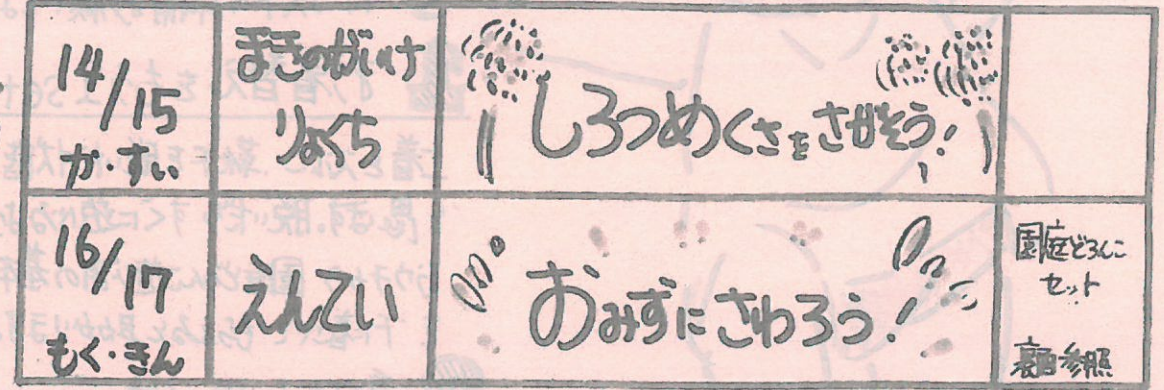 14/15
か・すい
まきのがいけ
りょくち
しろつめくさをさがそう!
16/17
もく・きん
えんてい
おみずにさわろう!
園庭どろんこ
セット
裏面参照